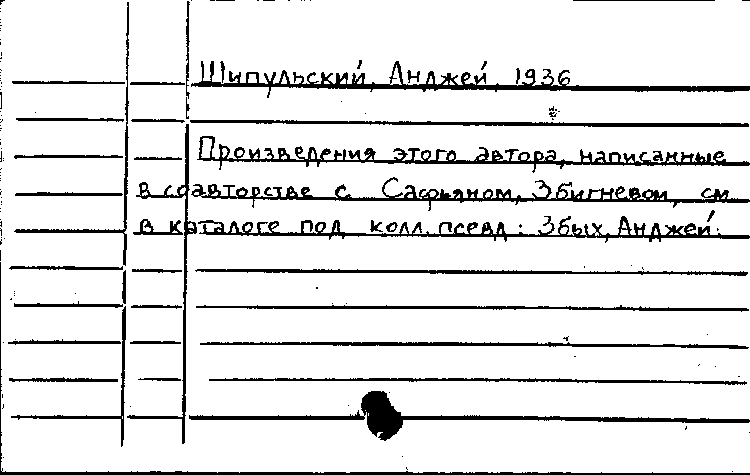 Шипульский, Анджей, 1936
Произведения этого автора, написанные
в соавторстве с Сафьяном, Збигневом, см.
в каталоге под колл. псевд.: Збых, Анджей.